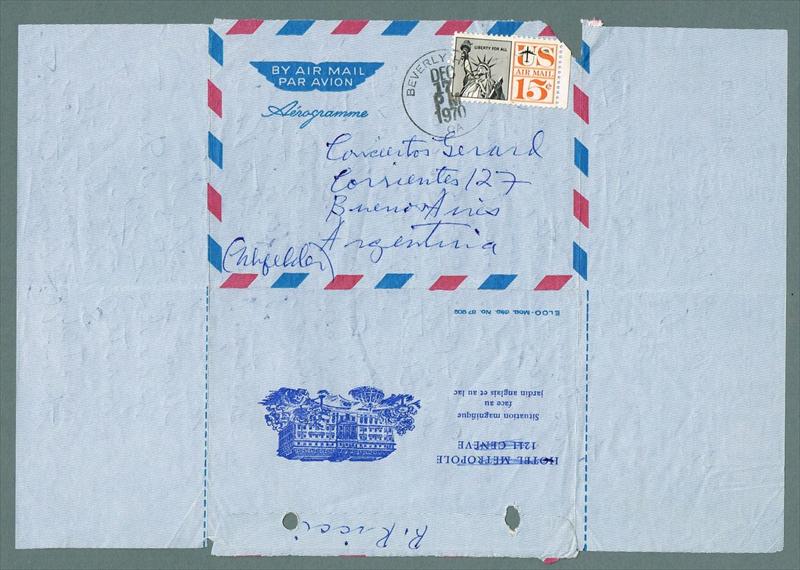 BY AIR MAIL
PAR AVION
Aérogramme
BEVERLY
DEC
17
PM
1970
CA
LIBERTY FOR ALL
US
AIR MAIL
15¢
Conciertos Gerard
Corrientes 127
Buenos Aires
Argentina
ELCO - Mod. dép. No. 87 902
HOTEL METROPOLE
1211 GENÈVE
Situation magnifique
face au
jardin anglais et au lac
R. Ricci